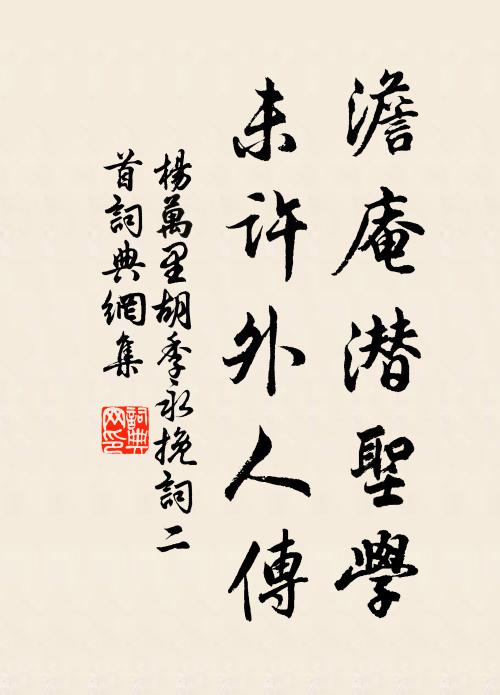 澹庵潜聖學
未许外人傳
楊萬里胡季永挽詞二
首詞典網集
詞典
网印